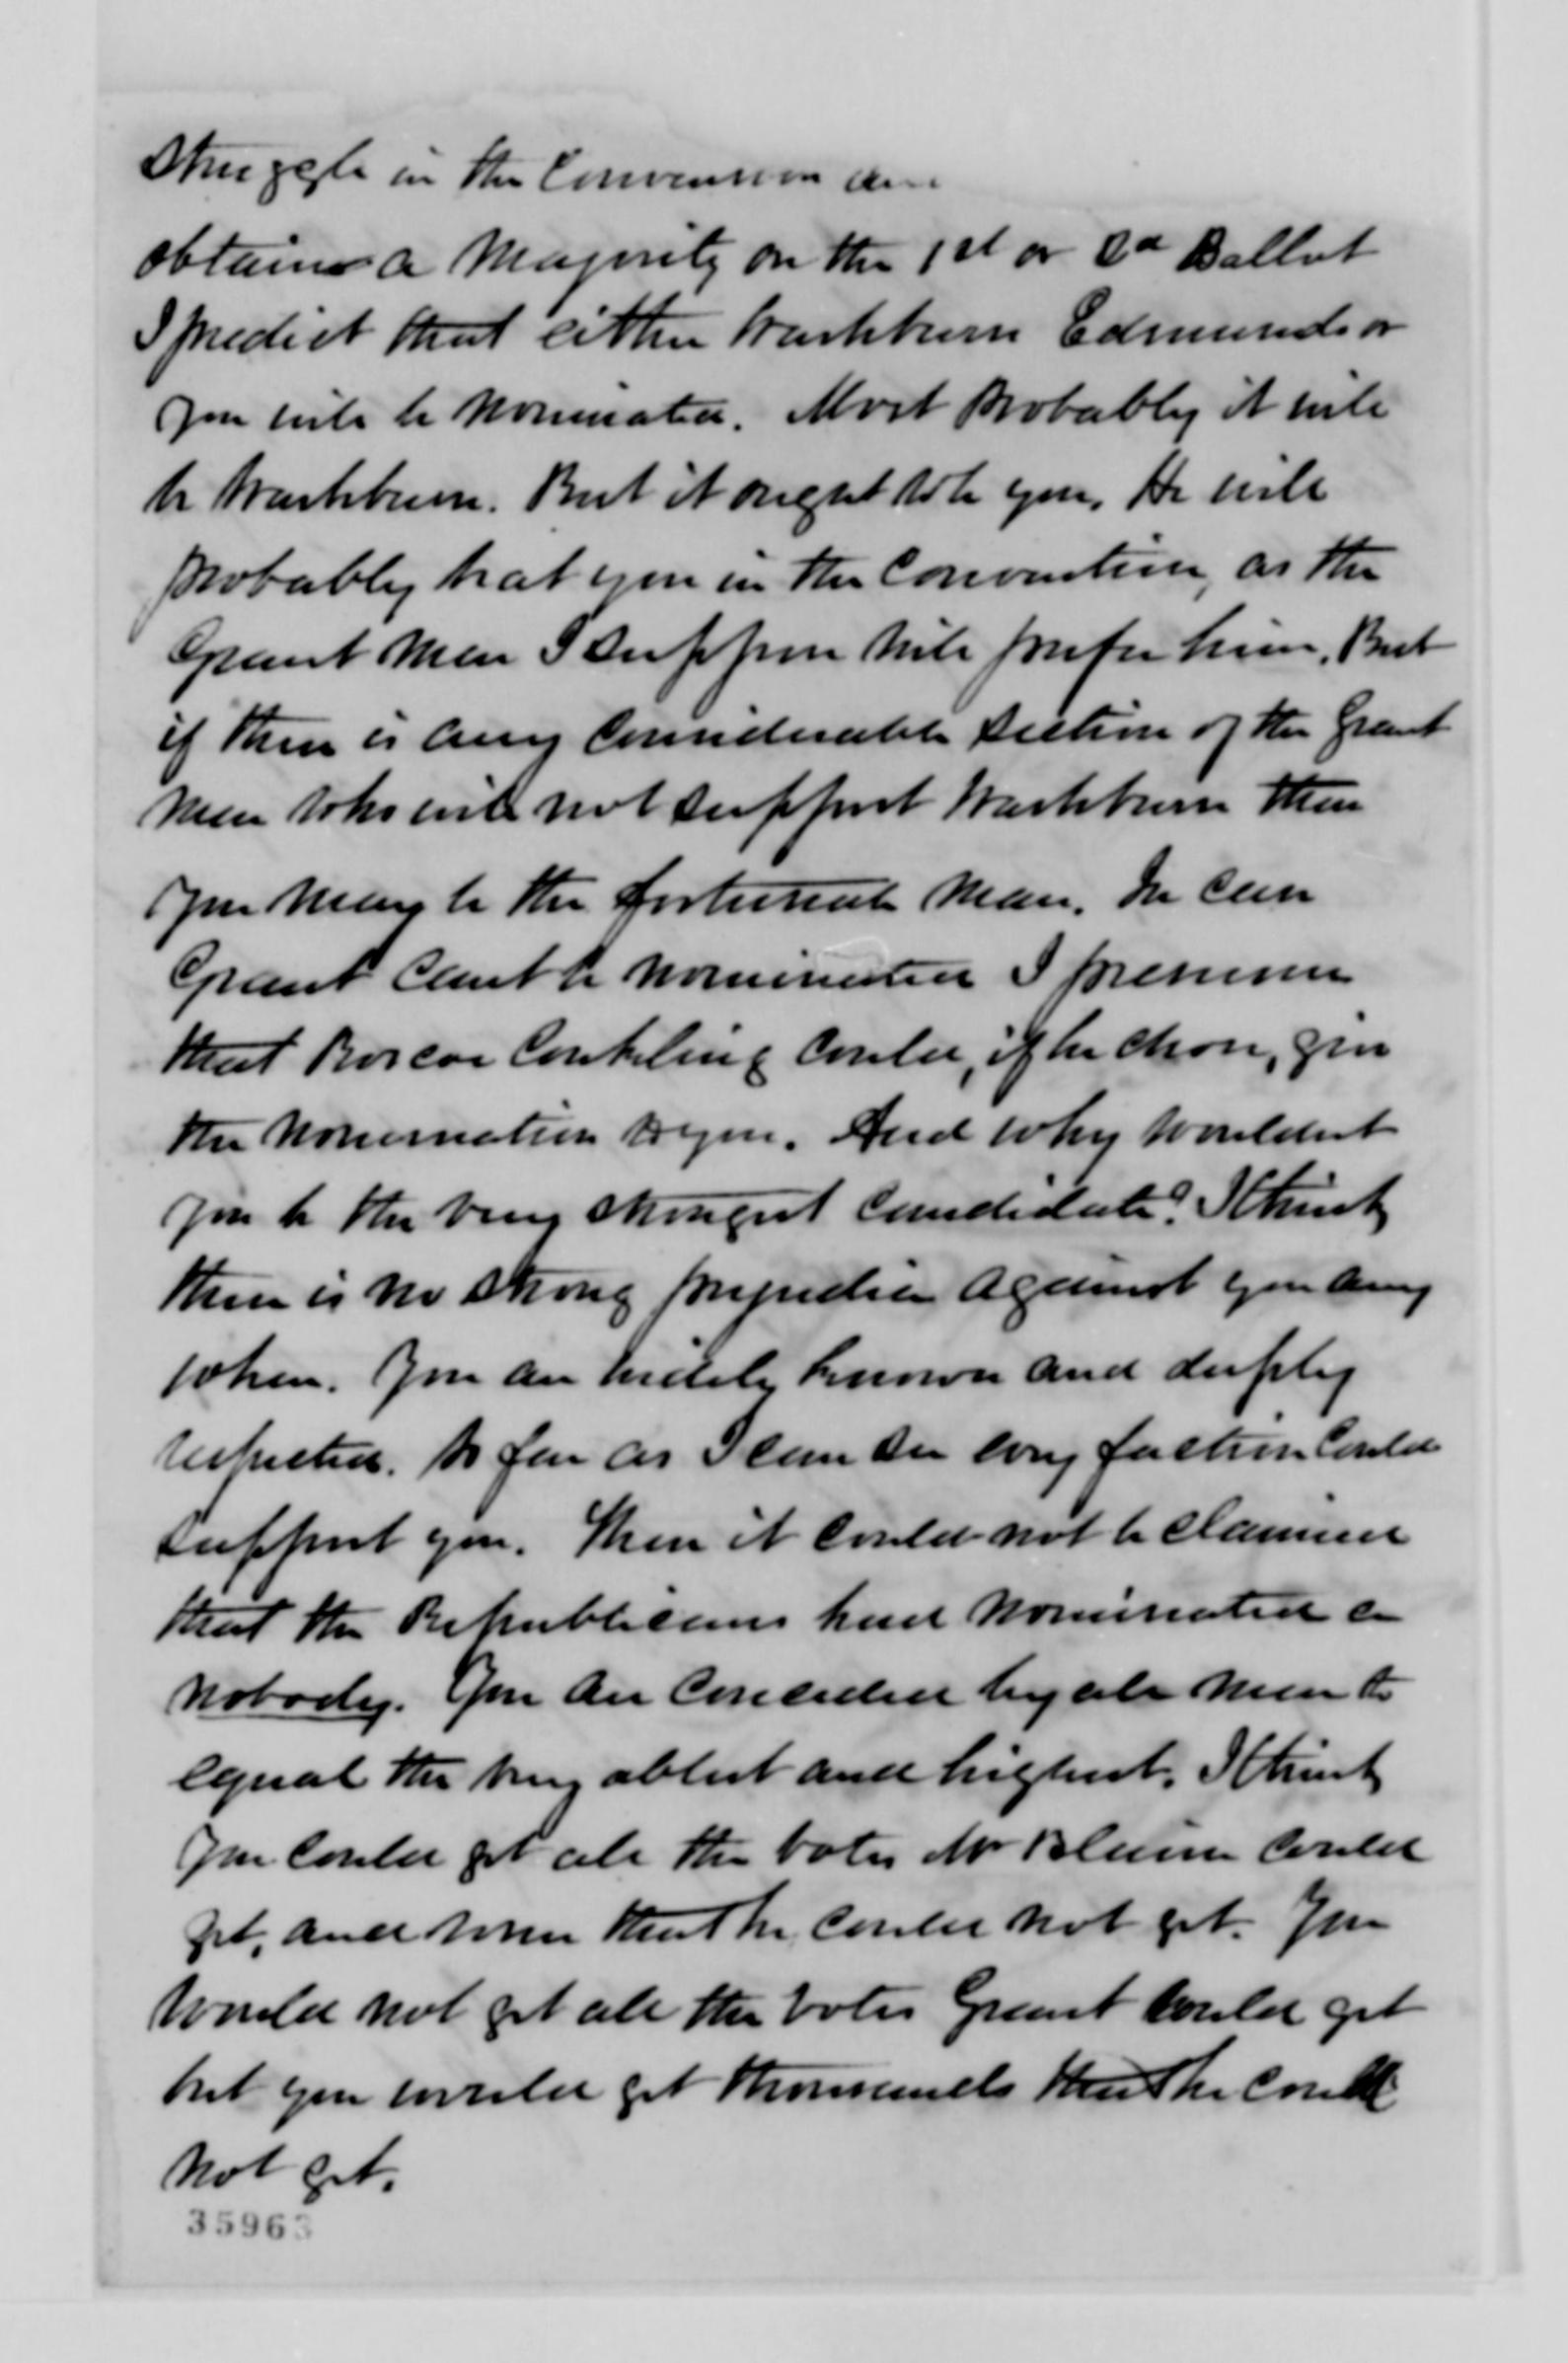 Struggle in the Convention
obtains a Majority on the 1st or 2d Ballot
I predict that either Washburn Edmunds or
you will be Nominated. Most Probably it will
be Washburn. But it ought to be you. He will
probably beat you in the Convention, as the
Grant Men I suppose will prefer him. But
if there is any Considerable section of the Grant
Men who will not support Washburn then
you May be the fortunate Man. In case
Grant cant be Nominated I presume
that Roscoe Conkling could, if he chose, give
the Nomination to you. And why wouldnt
you be the very strongest Candidate? I think
there is no strong prejudice against you any
where. You are widely known and deeply
respected. So far as I can see any faction could
support you. Then it could not be claimed
that the Republicans had Nominated a
nobody. You are conceded by all Men to
equal the very ablest and highest. I think
you could get all the votes Mr Blaine could
get, and some that he could not get. You
would not get all the votes Grant could get
but you would get thousands that he could
not get.
35963